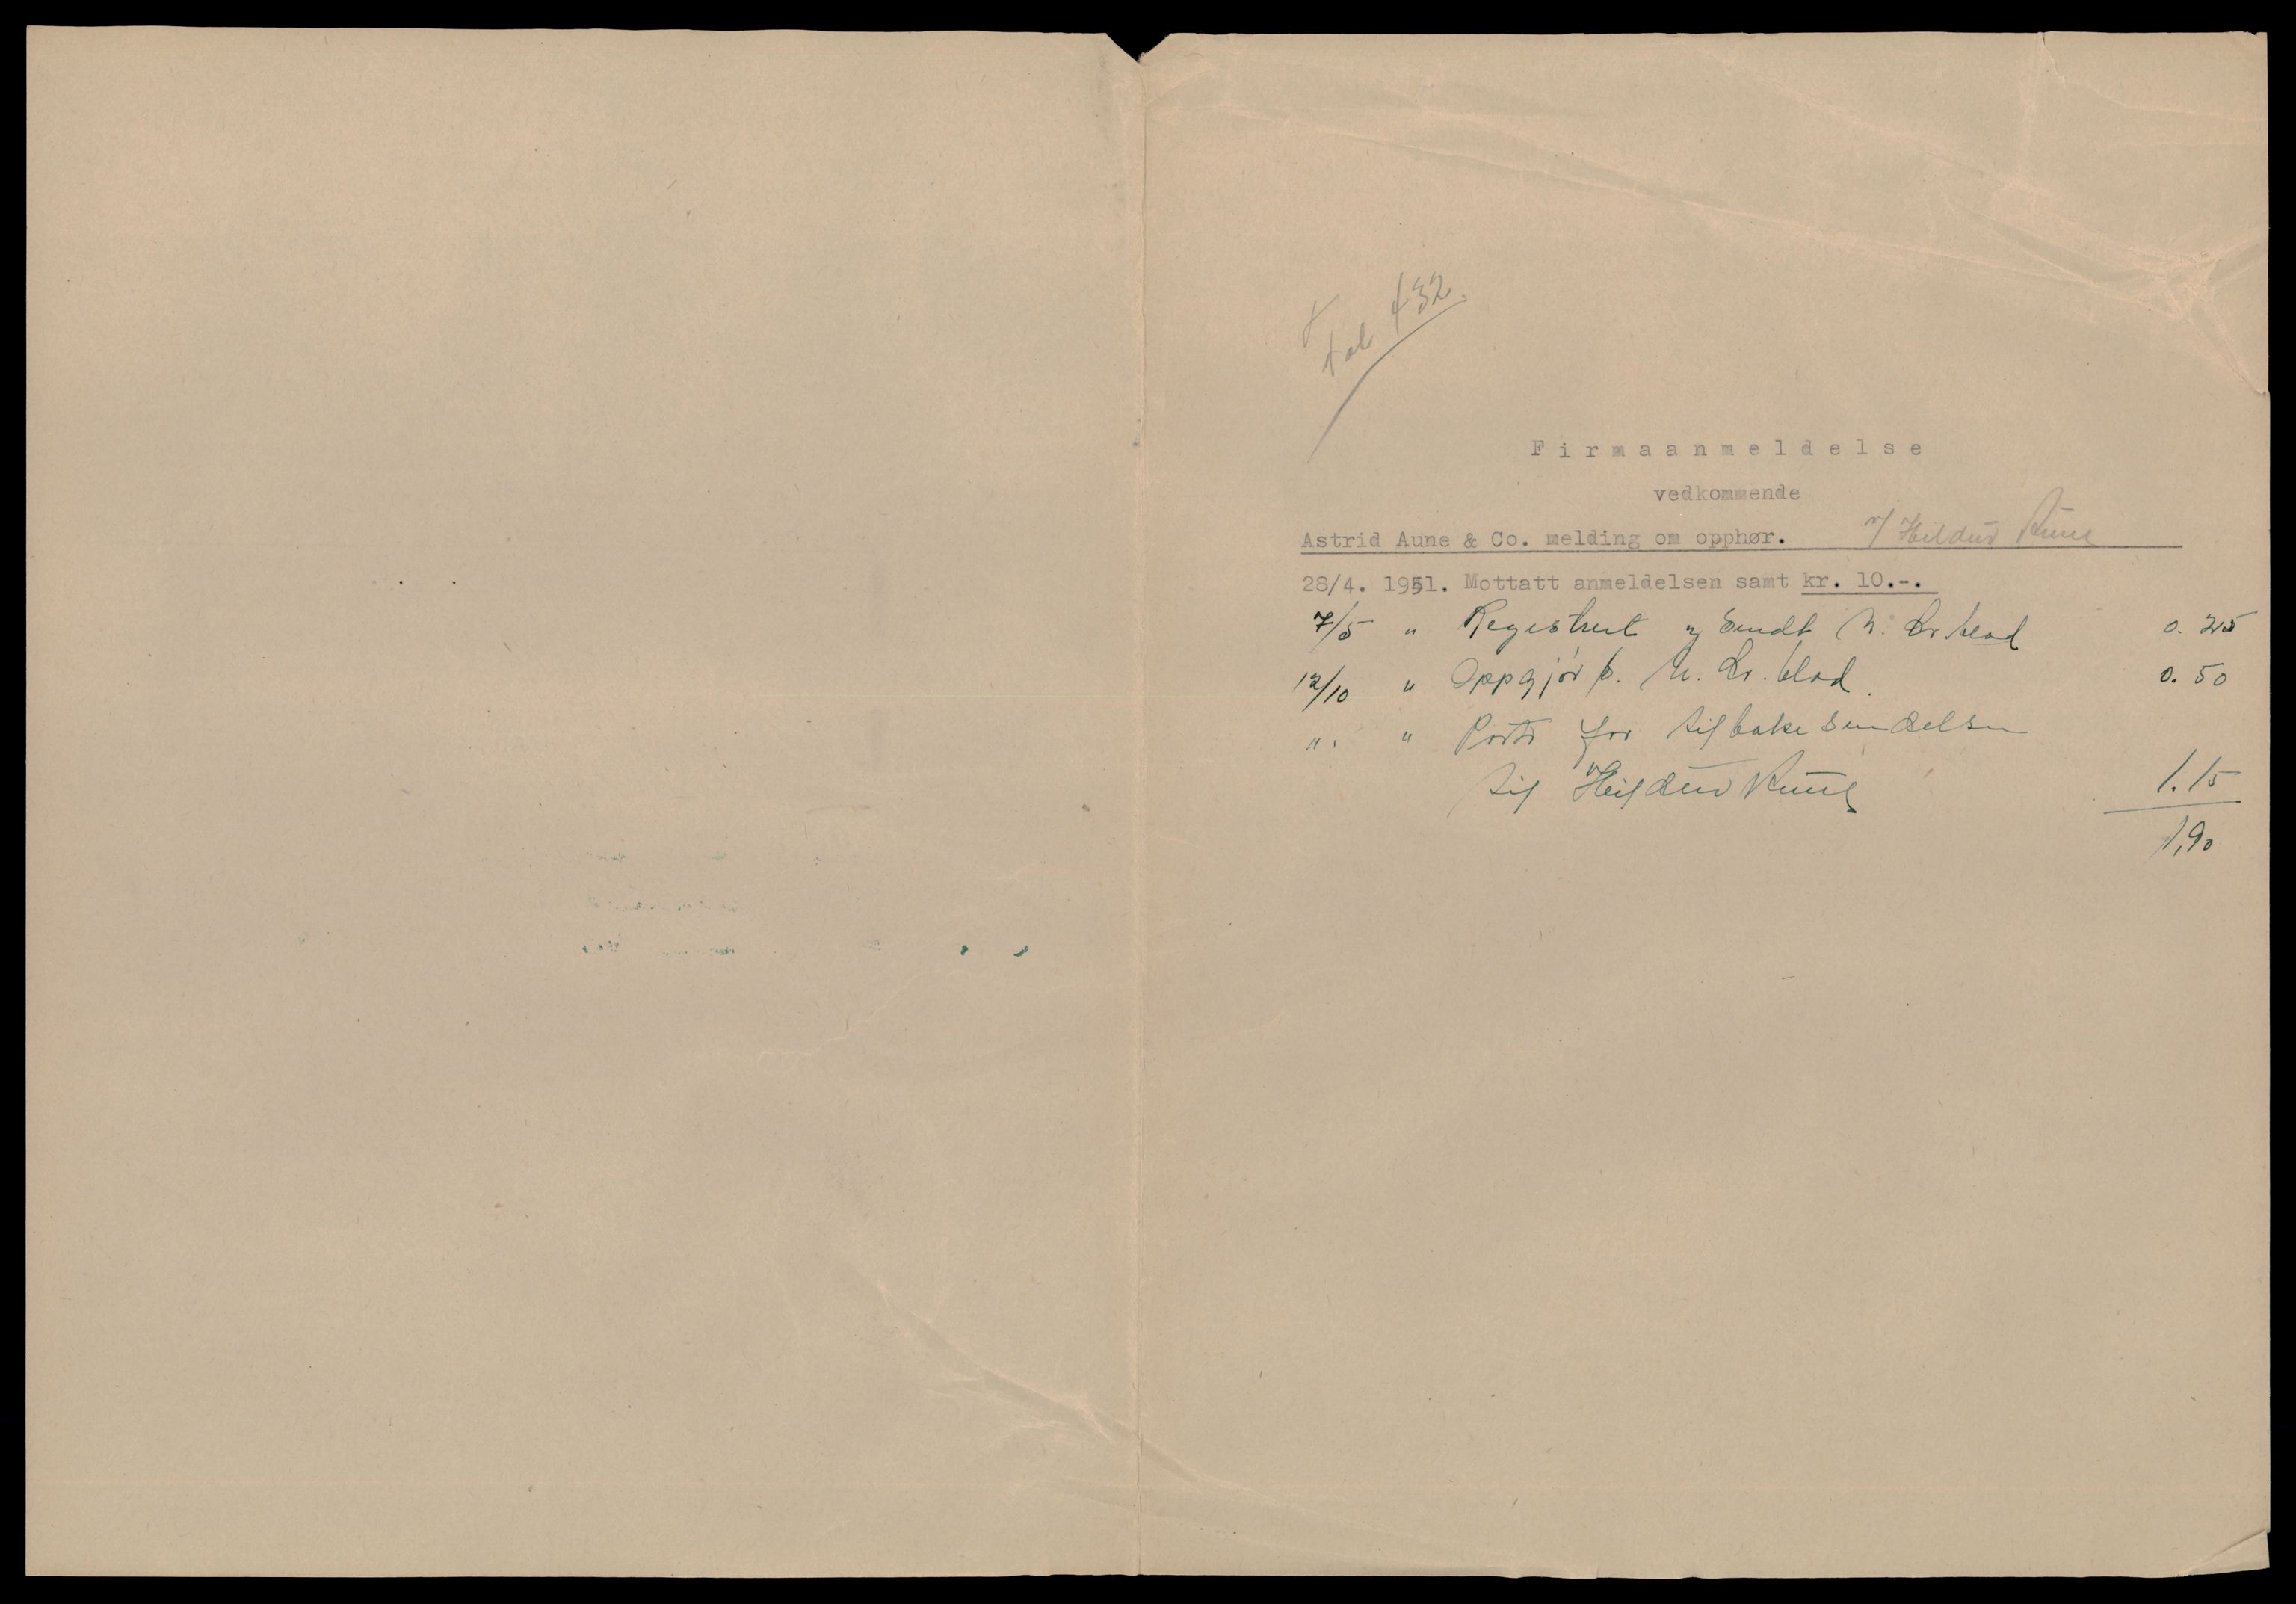 fol 432.
Firmaanmeldelse
vedkommende
Astrid Aune & Co. melding om opphør. v/ Hildur Aune
28/4. 1951. Mottatt anmeldelsen samt kr. 10.-.
7/5 " Registrert og sendt N. Lr. blad 0.25
12/10 " Oppgjør f. N. Lr. blad. 0.50
". " Porto for tilbakesendelsen
til Hildur Aune 1.15
1,90